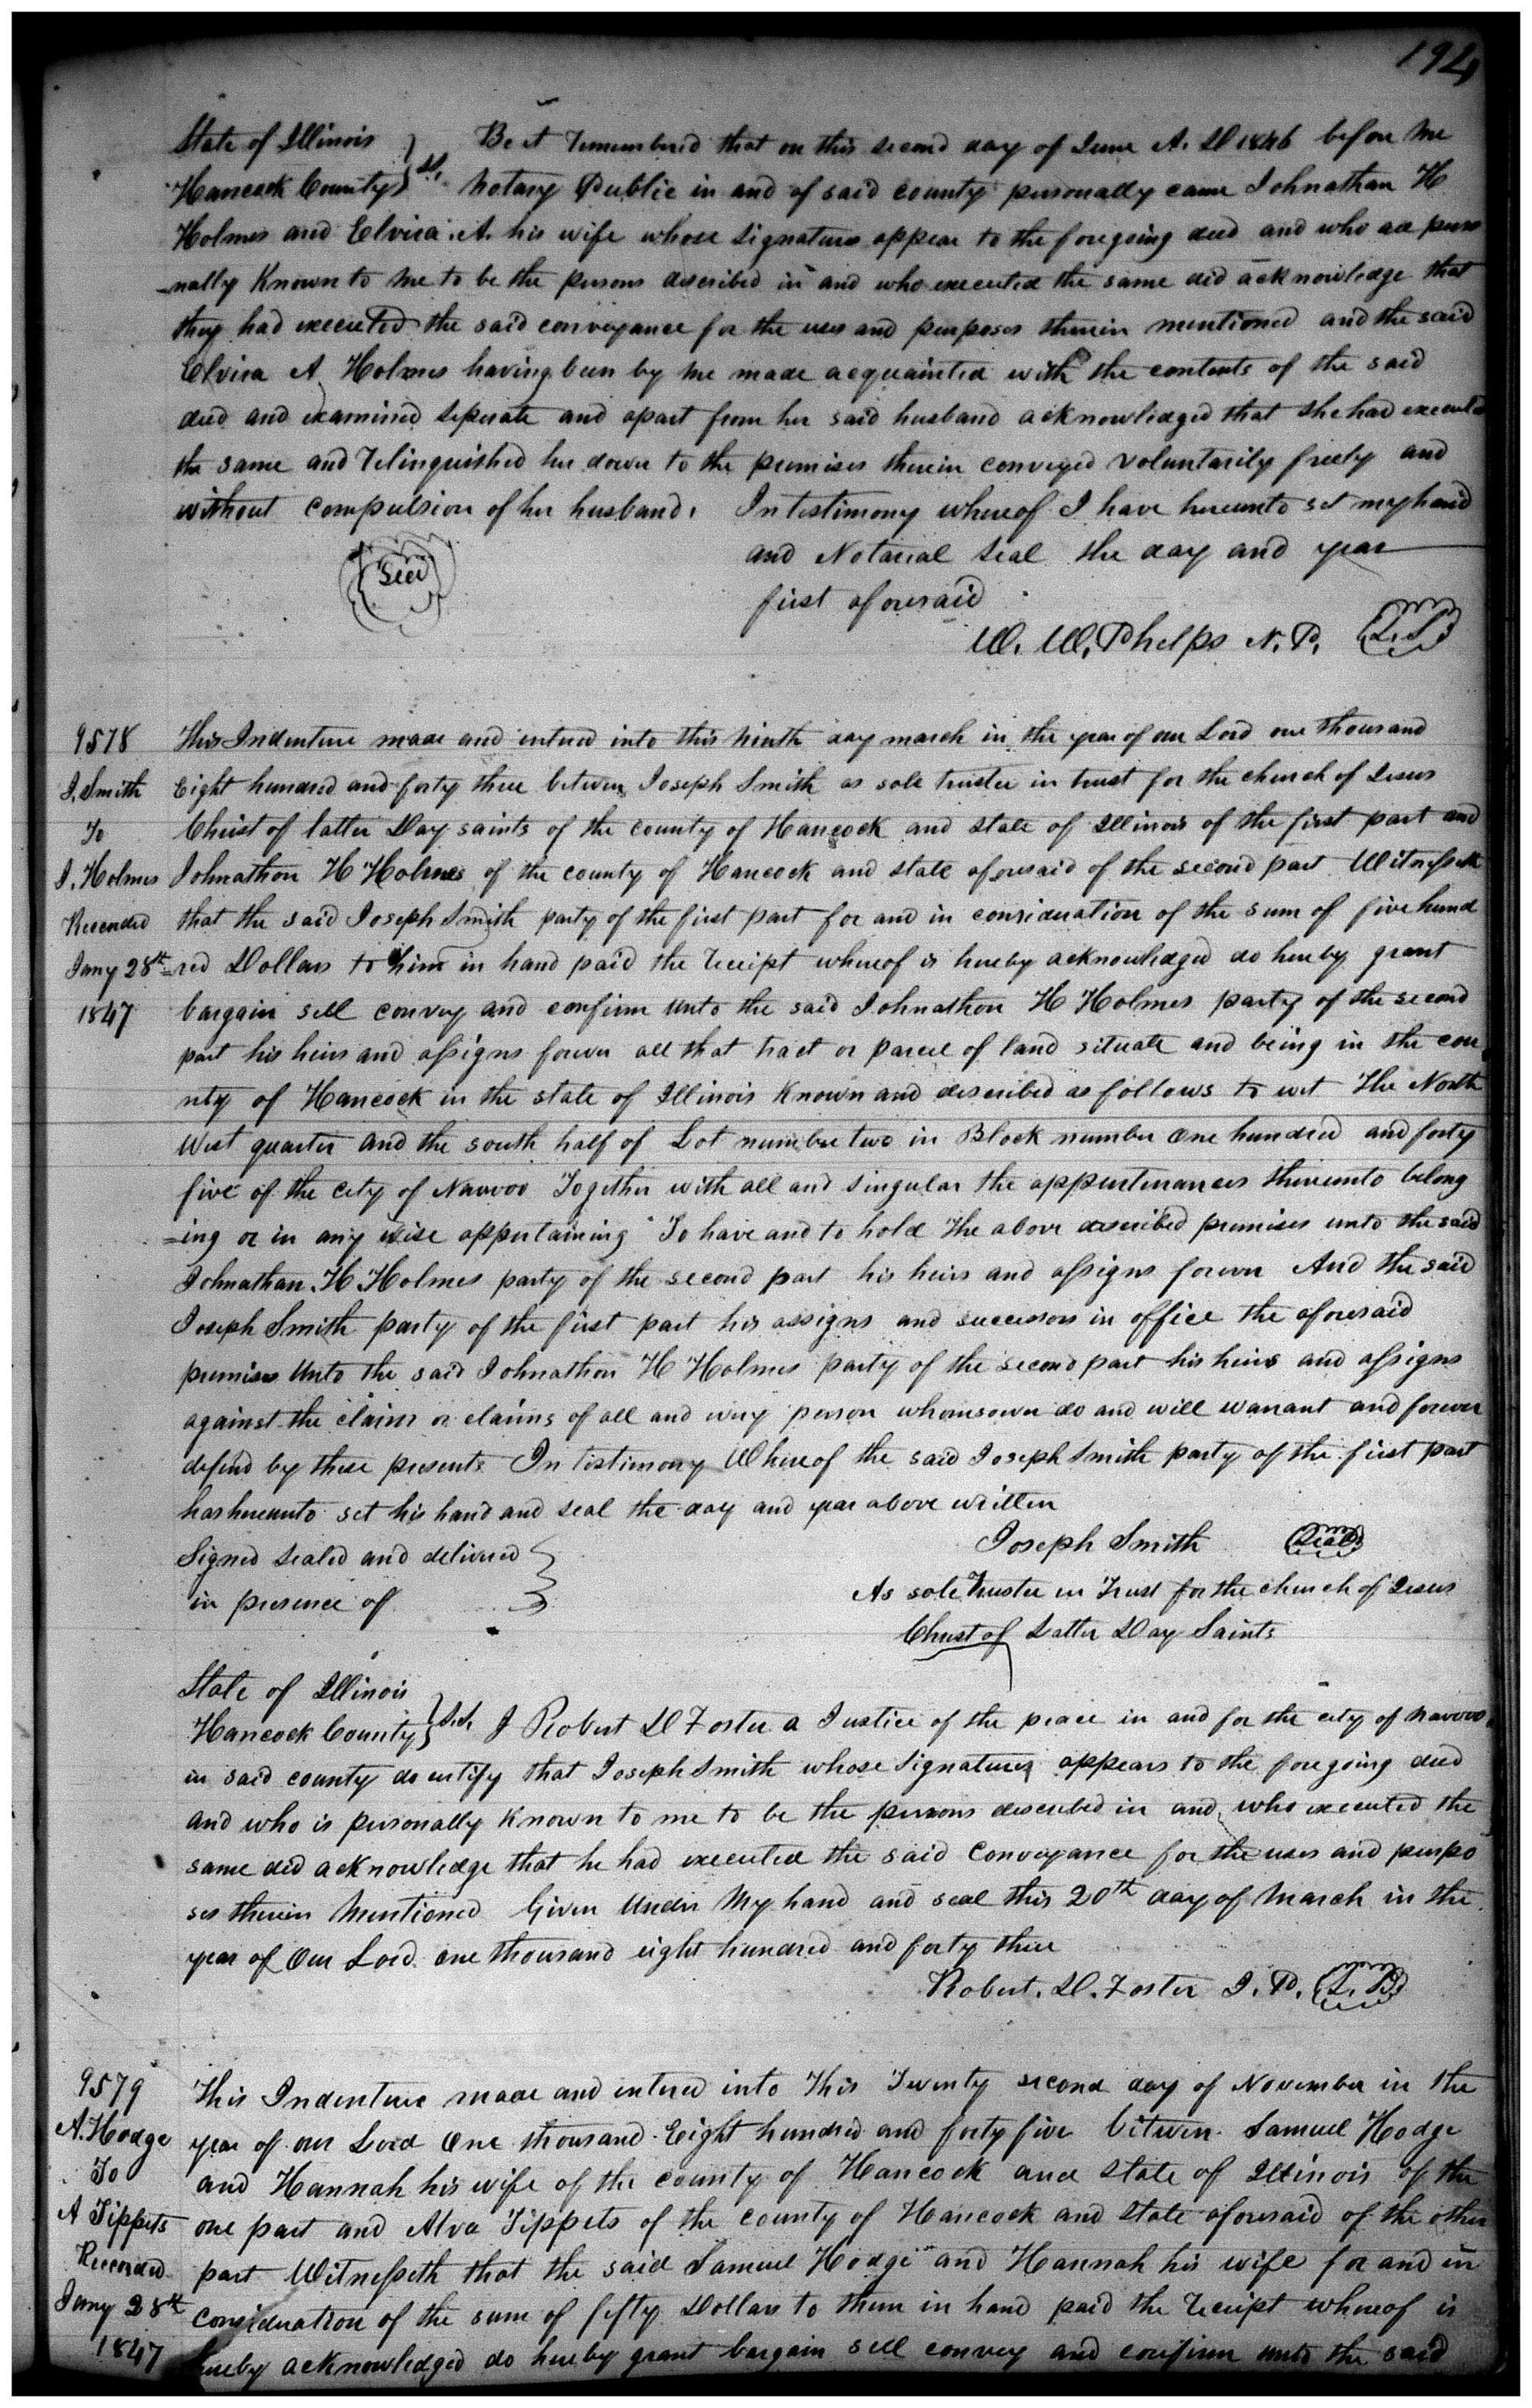 194
State of Illinois
Hancock County } ss. Be it remembered that on this second day of June A. D 1846 before me
Notary Public in and of said county personally came Johnathan H
Holmes and Elvira. A. his wife whose signatures appear to the foregoing deed and who are perso
-nally Known to me to be the persons described in and who executed the same did acknowledge that
they had executed the said conveyance for the uses and purposes therein mentioned and the said
Elvira A Holmes having been by me made acquainted with the contents of the said
deed and examined seperate and apart from her said husband acknowledged that she had executed
the same and relinquished her dower to the premises therein conveyed voluntarily freely and
without compulsion of her husband. In testimony whereof I have hereunto set my hand
and Notarial seal the day and year
first aforesaid
Seal
W. W. Phelps N. P. L.S.
9578
J. Smith
To
J. Holmes
Recorded
Jany 28th
1847
This Indenture made and entered into this ninth day march in the year of our Lord one thousand
Eight hundred and forty three between Joseph Smith as sole trustee in trust for the church of Jesus
Christ of latter Day saints of the county of Hancock and state of Illinois of the first part and
Johnathon H Holmes of the county of Hancock and state aforesaid of the second part Witnesseth
that the said Joseph Smith party of the first part for and in consideration of the sum of five hund
=red Dollars to him in hand paid the receipt whereof is hereby acknowledged do hereby grant
bargain sell convey and confirm unto the said Johnathon H Holmes party of the second
part his heirs and assigns forever all that tract or parcel of land situate and being in the cou
nty of Hancock in the state of Illinois Known and described as follows to wit The North
West quarter and the south half of Lot number two in Block number One hundred and forty
five of the city of Nauvoo Together with all and singular the appurtenances thereunto belong
=ing or in any wise appertaining To have and to hold the above described premises unto the said
Johnathan. H. Holmes party of the second part his heirs and assigns forever And the said
Joseph Smith party of the first part his assigns and successors in office the aforesaid
premises unto the said Johnathon H Holmes party of the second part his heirs and assigns
against the claim or claims of all and every person whomsoever do and will warrant and forever
defend by these presents In testimony Whereof the said Joseph Smith party of the first part
has hereunto set his hand and seal the day and year above written
Signed sealed and delivered
in presence of
Joseph Smith Seal
As sole Trustee in Trust for the church of Jesus
Christ of Latter Day Saints
State of Illinois
Hancock County } S.S. I Robert D Foster a Justice of the peace in and for the city of Nauvoo
in said county do certify that Joseph Smith whose signatures appears to the foregoing deed
and who is personally Known to me to be the persons described in and who executed the
same did acknowledge that he had executed the said conveyance for the uses and purpo
ses therein mentioned Given Under My hand and seal this 20th day of March in the
year of Our Lord one thousand eight hundred and forty three
Robert. D. Foster J. P. L. S.
9579
A. Hodge
To
A Tippets
Recorded
Jany 28th
1847
This Indenture made and entered into This Twenty second day of November in the
year of our Lord One thousand Eight hundred and forty five between Samuel Hodge
and Hannah his wife of the county of Hancock and State of Illinois of the
one part and Alva Tippets of the county of Hancock and State aforesaid of the other
part Witnesseth that the said Samuel Hodge and Hannah his wife for and in
consideration of the sum of fifty Dollars to them in hand paid the receipt whereof is
hereby acknowledged do hereby grant bargain sell convey and confirm unto the said